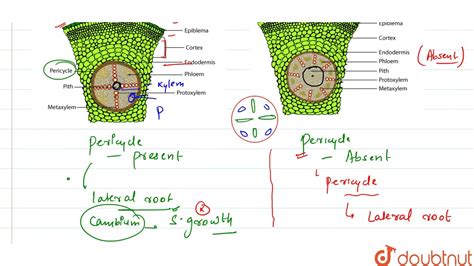 Epiblema
Cortex
Endodermis
Pericycle
Phloem
Pith
Xylem
Protoxylem
Metaxylem
P
Epiblema
Cortex
Endodermis
Phloem
Pith
Protoxylem
Metaxylem
(Absent)
Pericycle
- present
lateral root
Cambium → S. growth
Pericycle
- Absent
Pericycle
Lateral root
doubtnut